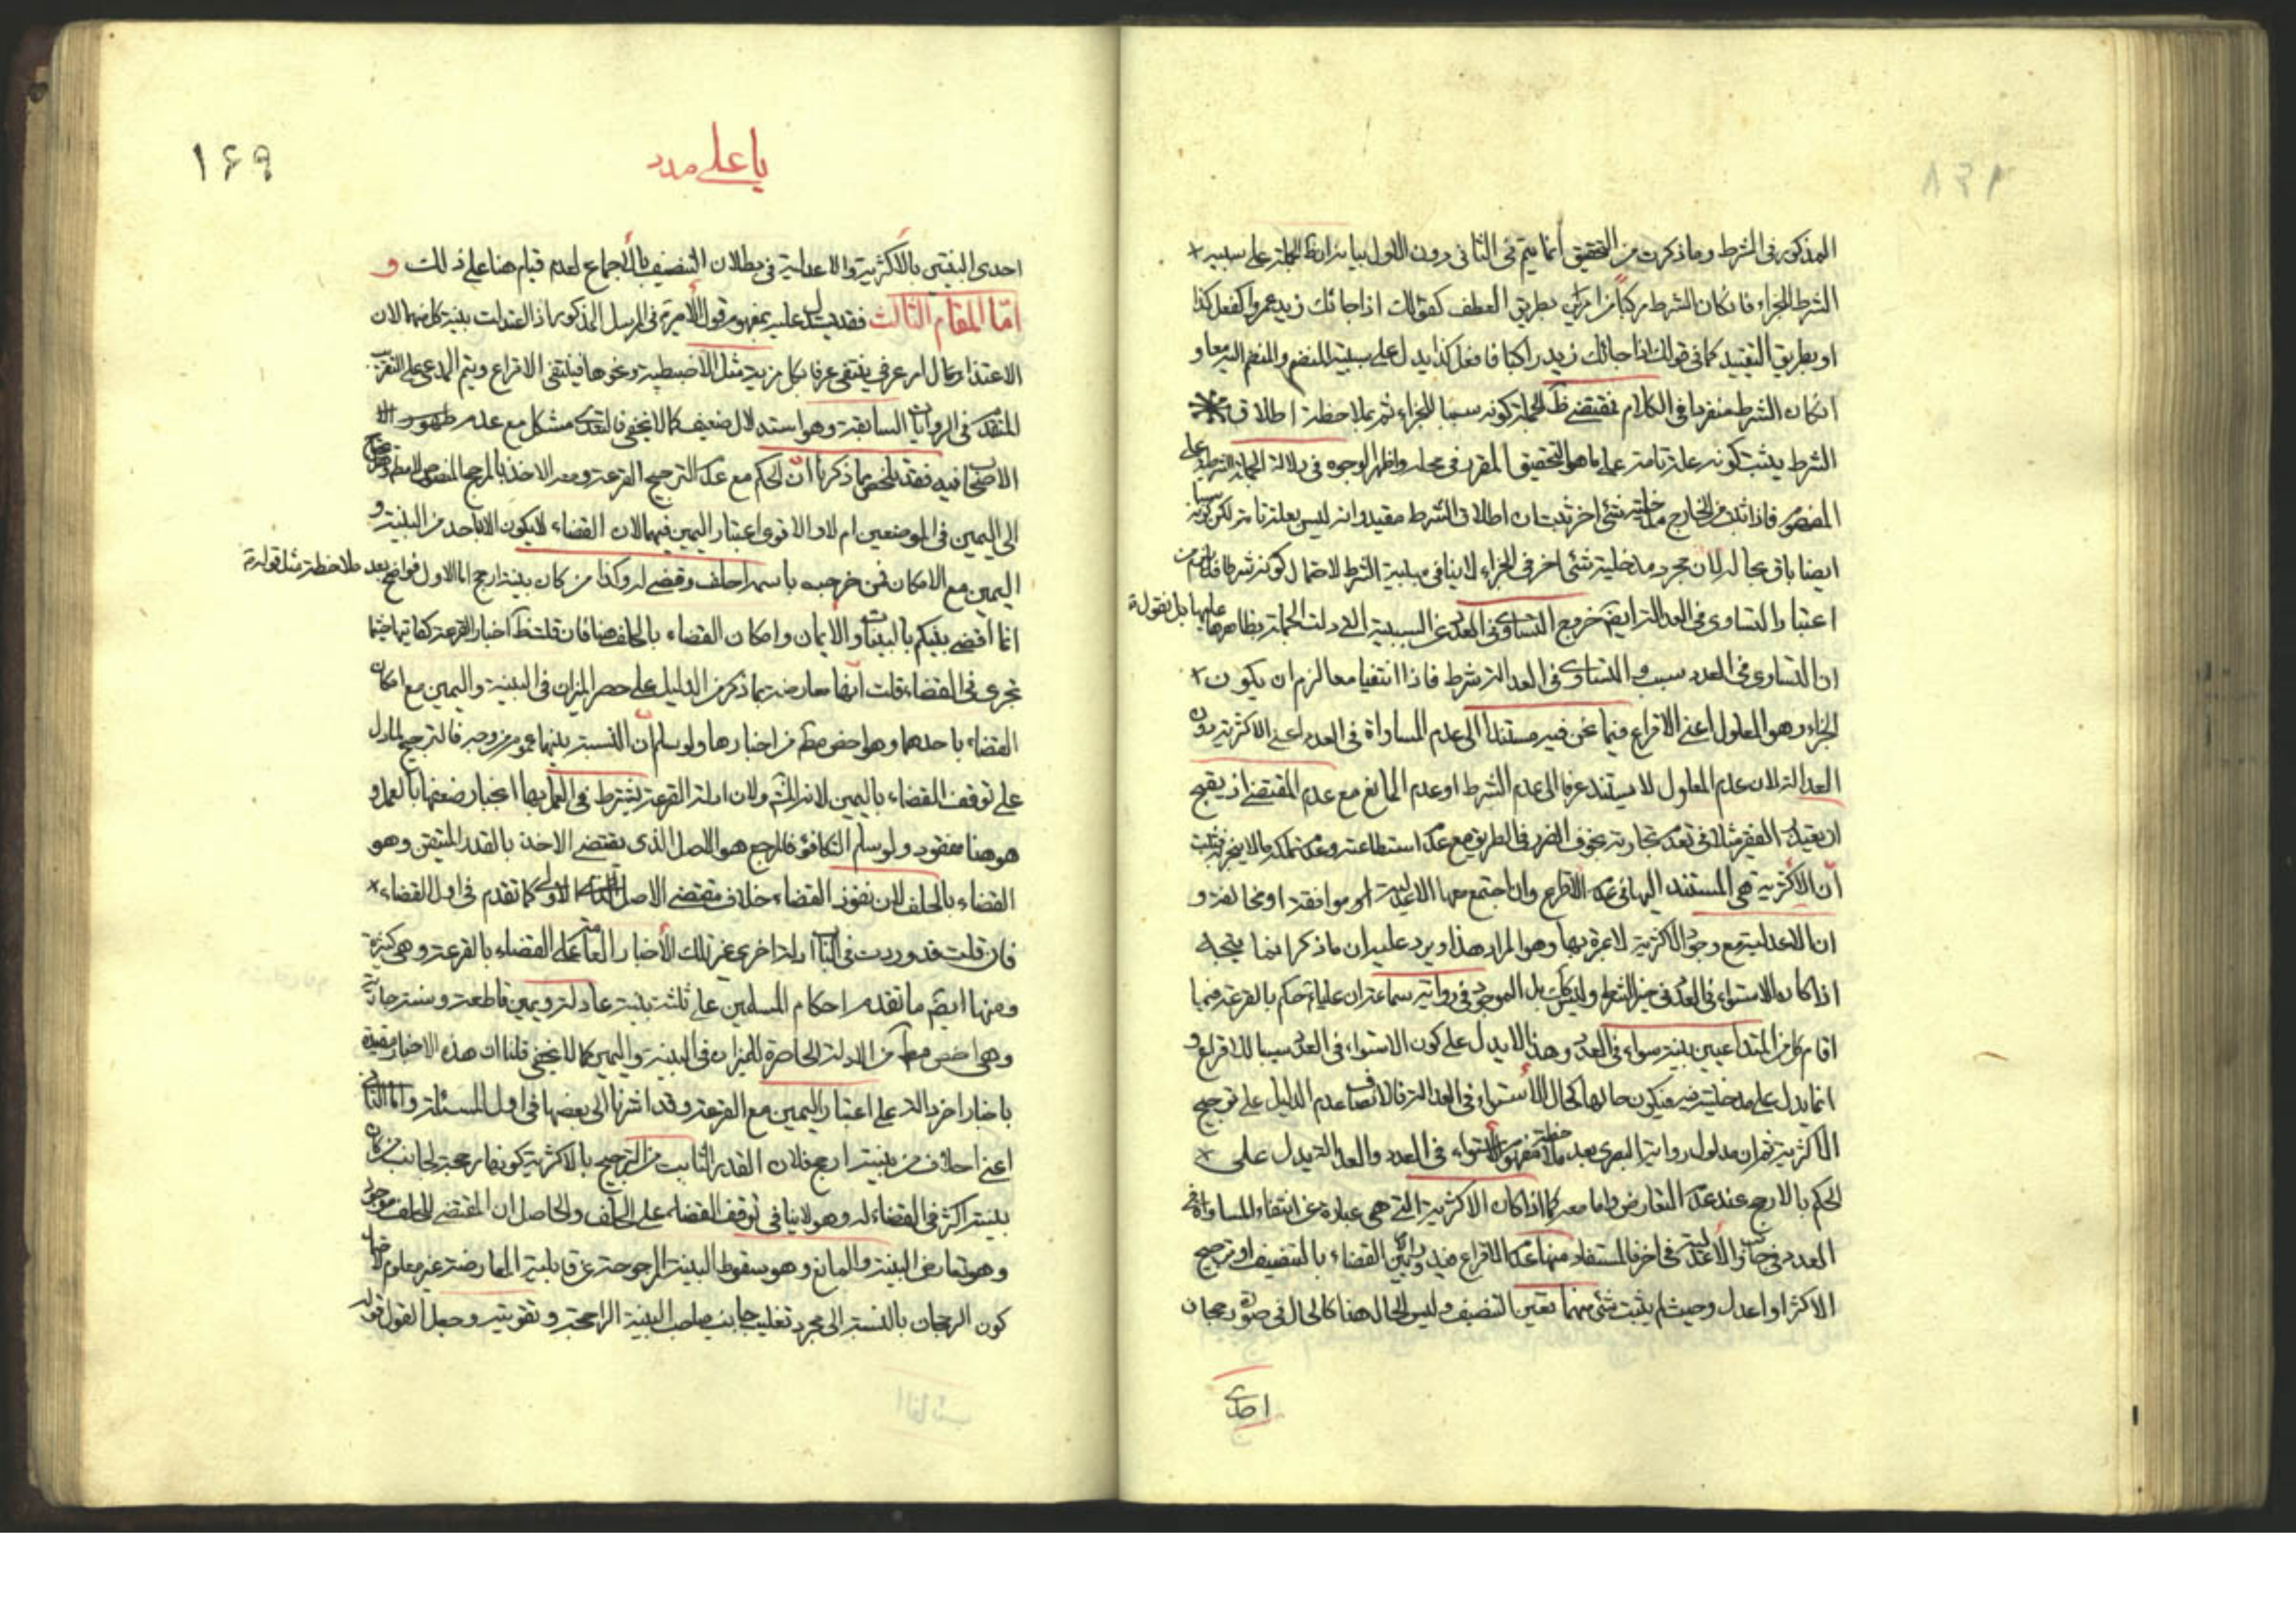 المذكور فى الشرط وما ذكرت من التحقيق انما يتم فى الثانى دون الاول بيانه ان ظ الجملة على سببية
الشرط للجزاء فان كان الشرط مركبا من امرين بطريق العطف كقولك اذا جائك زيد وعمرو افعل كذا
او بطريق التقييد كما فى قولك اذا جائك زيد راكبا فافعل كذا يدل على سببية المنضم والمنضم اليه معا و
ان كان الشرط منفردا فى الكلام فمقتضى ظ الجملة كونه سببا للجزاء ثم بملاحظة اطلاق
الشرط يثبت كونه علة تامة على ما هو التحقيق المقرر فى محله واظهر الوجوه فى دلالة الجملة الشرطية على
المفهوم فاذا ثبت من الخارج مدخلية شئ اخر ثبت ان اطلاق الشرط مقيد وانه ليس بعلة تامة لكن كونه سببا
ايضا باق بحاله لان مجرد مدخلية شئ اخر فى الجزاء لا ينافى سببية الشرط لاحتمال كونه شرطا فلا يلزم من
اعتبار التساوى فى العدالة ايضا خروج التساوى فى العدد عن السببية التى دلت الجملة بظاهرها عليها بل نقول
ان التساوى فى العدد سبب والتساوى فى العدالة شرط فاذا انتفيا معا لزم ان يكون
الجزاء وهو المعلول اعنى الاقراع فيما نحن فيه مستندا الى عدم المساواة فى العدد اعنى الاكثرية دون
العدالة لان عدم المعلول لا يستند عرفا الى عدم الشرط او عدم المانع مع عدم المقتضى اذ يقبح
ان يعتذر الفقير مثلا فى تعدد تجارته بخوف الضرر فى الطريق مع عدم استطاعته وعدم تملكه مالا يتجر به فثبت
ان الاكثرية هى المستند اليها فى عدم الاقراع وان اجتمع معها الاعدلية او موافقة او مخالفة و
ان الاعدلية مع وجود الاكثرية لا عبرة بها وهو المراد هذا ويرد عليه ان ما ذكر انما يتجه
اذا كان الاستواء فى العدد فى حيز الشرط وليس كك بل الموجود فى رواية سماعة ان عليا حكم بالقرعة فيما
اقام كل من المتداعيين بينة سواء فى العدد وهذا لا يدل على كون الاستواء فى العدد سببا للاقراع و
انما يدل على مدخليته فيه فيكون حالها كحال الاستواء فى العدالة فالانصاف عدم الدليل على ترجيح
الاكثرية ثم ان مدلول رواية البصرى بعد ملاحظة مفهوم الاستواء فى العدد والعدالة يدل على
الحكم بالارجح عند عدم التعارض واما معه كما اذا كان الاكثرية التى هى عبارة عن انتفاء المساواة فى
العدد فى جانب والاعدلية فى اخر فالمستفاد منها عدم الاقراع فيدور بين القضاء بالتنصيف او ترجيح
الاكثر او اعدل وحيث لم يثبت شئ منهما تعين التنصيف وليس الحال هنا كالحال فى صورة رجحان
احدى
١۶٩
يا على مدد
احدى البينتين بالاكثرية والاعدلية فى بطلان التنصيف بالاجماع لعدم قيام هنا على ذلك و
اما المقام الثالث فقد يستدل عليه بمفهوم قول الامير فى المرسل المذكور اذا اعتدلت بينة كل منهما لان
الاعتدال امر عرفى ينتفى عرفا بكل مزية مثل الاضبطية ونحوها فينتفى الاقراع ويتم المدعى على التقريب
المتقدم فى الروايات السابقة وهو استدلال ضعيف كما لا يخفى فالتعدى مشكل مع عدم ظهور
الاصحاب فيه فقد تلخص بما ذكرنا ان الحكم مع عدم الترجيح القرعة ومعه الاخذ بالمرجح المنصوص
الى اليمين فى الموضعين ام لا والاقوى اعتبار اليمين فيهما لان القضاء لا يكون الا باحد من البينة و
اليمين مع الامكان فمن خرج باسمه احلف وقضى له وكذا من كان بينته ارجح اما الاول فواضح بعد ملاحظة مثل قوله
انما اقضى بينكم بالبينات والايمان وامكان القضاء بالحلف هنا فان قلت ظ اخبار القرعة كفايتها فيما
تجرى فى القضاء قلت انها معارضة بما ذكر من الدليل على حصر الميزان فى البينة واليمين مع امكان
القضاء باحدهما وهو اخص مط من اخبارها ولو سلم ان النسبة بينهما عموم من وجه فالترجيح لما دل
على توقف القضاء باليمين لانه المش ولان ادلة القرعة يشترط فى العمل بها انجبار ضعفها بالعمل و
هو هنا مفقود ولو سلم التكافؤ فالمرجع هو الاصل الذى يقتضى الاخذ بالقدر المتيقن وهو
القضاء بالحلف لان نفوذ القضاء خلاف مقتضى الاصل الاولى كما تقدم فى اول القضاء
فان قلت قد وردت فى الباب ادلة اخرى غير تلك الاخبار العامة على القضاء بالقرعة وهى كثيرة
ومنها ايضا ما تقدم احكام المسلمين على ثلثة بينة عادلة ويمين قاطعة وسنة جارية
وهى اخص مط من الادلة الحاصرة للميزان فى البينة واليمين كما لا يخفى قلنا ان هذه الاخبار مقيدة
باخبار اخر دالة على اعتبار اليمين مع القرعة وقد اشرنا الى بعضها فى اول المسئلة واما الثانى
اعنى احلاف من بينته ارجح فلان القدر الثابت من الترجيح بالاكثرية كونها مرجحة لجانب من كان
بينته اكثر فى القضاء له وهو لا ينافى توقف القضاء على الحلف والحاصل ان المقتضى للحلف موجود
وهو تعارض البينة والمانع وهو سقوط البينة المرجوحة عن قابلية المعارضة غير معلوم
كون الرجحان بالنسبة الى مجرد تغليب جانب صاحب البينة الراجحة وتقويته وجعل القول قوله